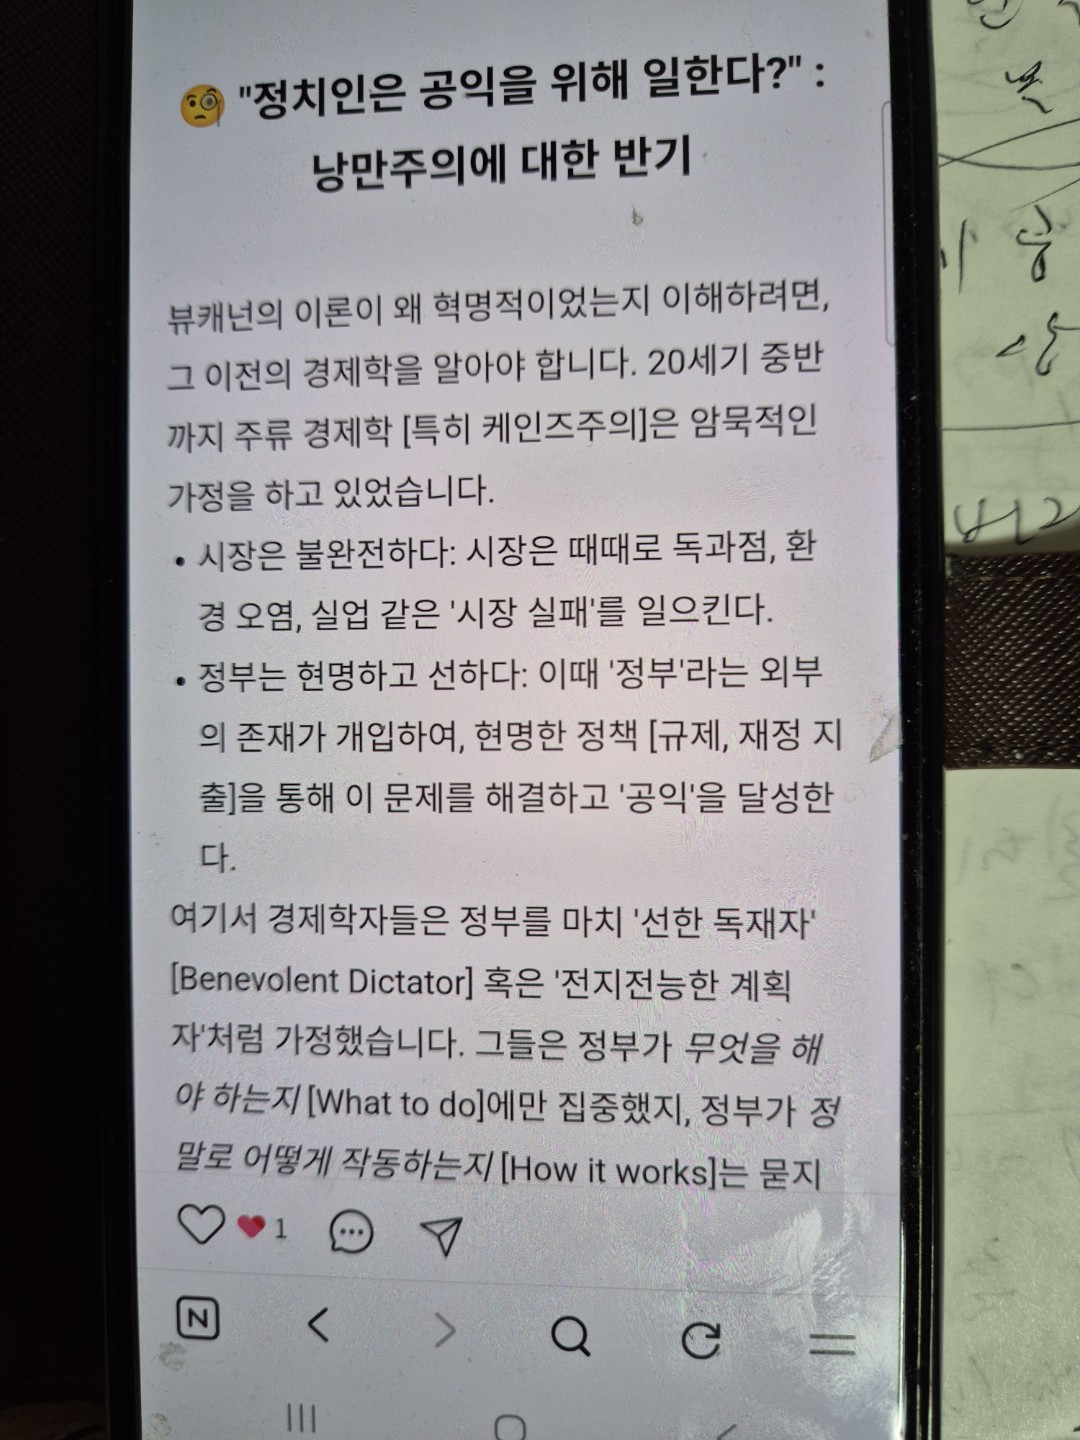 "정치인은 공익을 위해 일한다?" :
낭만주의에 대한 반기
뷰캐넌의 이론이 왜 혁명적이었는지 이해하려면,
그 이전의 경제학을 알아야 합니다. 20세기 중반
까지 주류 경제학 [특히 케인즈주의]은 암묵적인
가정을 하고 있었습니다.
• 시장은 불완전하다: 시장은 때때로 독과점, 환
경 오염, 실업 같은 '시장 실패'를 일으킨다.
• 정부는 현명하고 선하다: 이때 '정부'라는 외부
의 존재가 개입하여, 현명한 정책 [규제, 재정 지
출]을 통해 이 문제를 해결하고 '공익'을 달성한
다.
여기서 경제학자들은 정부를 마치 '선한 독재자'
[Benevolent Dictator] 혹은 '전지전능한 계획
자'처럼 가정했습니다. 그들은 정부가 무엇을 해
야 하는지 [What to do]에만 집중했지, 정부가 정
말로 어떻게 작동하는지 [How it works]는 묻지
1
N